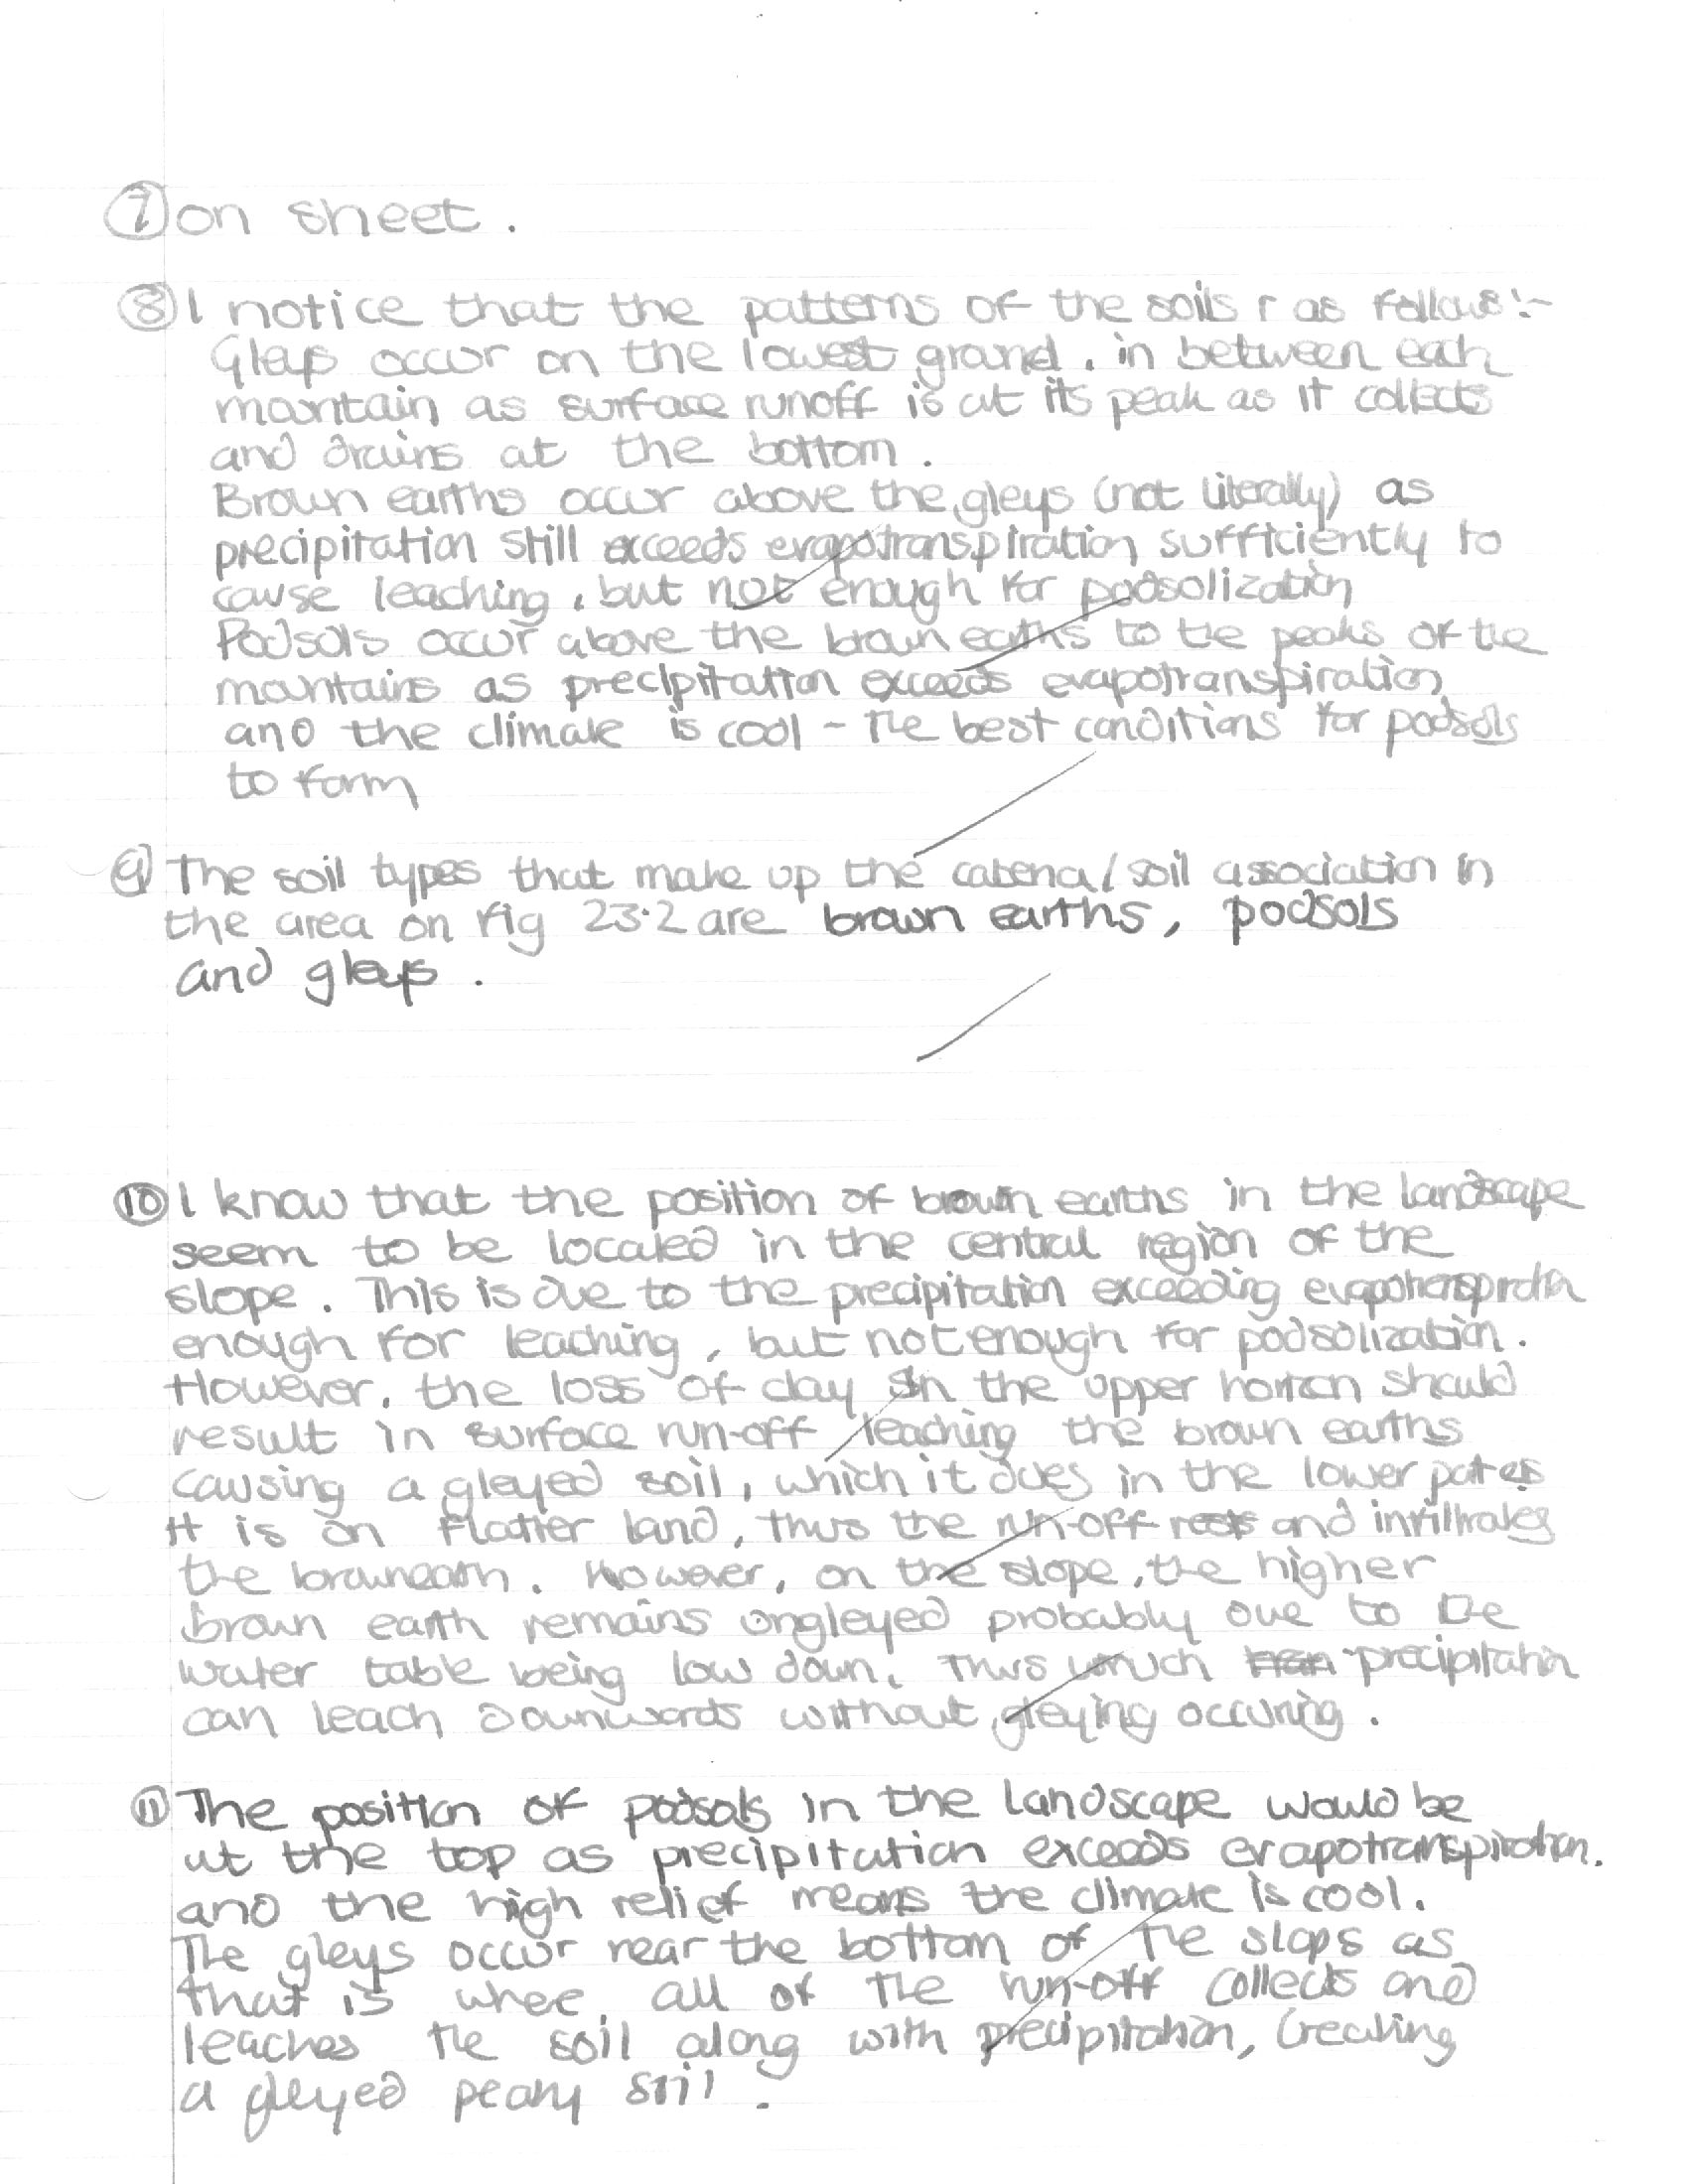 ⑦ on sheet.
⑧ I notice that the patterns of the soils r as follows:-
Gleys occur on the lowest ground, in between each
mountain as surface runoff is at its peak as it collects
and drains at the bottom.
Brown earths occur above the gleys (not literally) as
precipitation still exceeds evapotranspiration sufficiently to
cause leaching, but not enough for podsolization
Podsols occur above the brown earths to the peaks of the
mountains as precipitation exceeds evapotranspiration
and the climate is cool - the best conditions for podsols
to form
⑨ The soil types that make up the catena/soil association in
the area on fig 23.2 are brown earths, podsols
and gleys.
⑩ I know that the position of brown earths in the landscape
seem to be located in the central region of the
slope. This is due to the precipitation exceeding evapotranspiration
enough for leaching, but not enough for podsolization.
However, the loss of clay in the upper horizon should
result in surface run-off leaching the brown earths
causing a gleyed soil, which it does in the lower
It is on flatter land, thus the run-off rests and infiltrates
the brownearth. However, on the slope, the higher
brown earth remains ungleyed probably due to the
water table being low down. Thus much precipitation
can leach downwards without gleying occuring.
⑪ The position of podsols in the landscape would be
at the top as precipitation exceeds evapotranspiration.
and the high relief means the climate is cool.
The gleys occur near the bottom of the slope as
that is where all of the run-off collects and
leaches the soil along with precipitation, creating
a gleyed peaty soil.